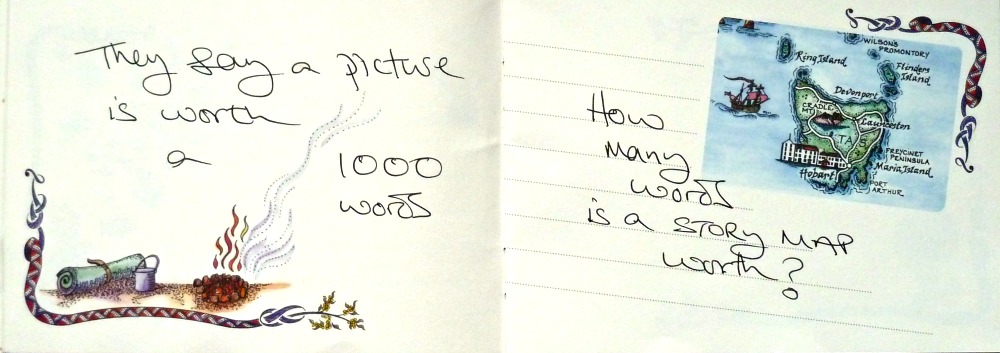 They say a picture
is worth
a 1000
words
How
many
words
is a STORY MAP
worth?
WILSONS
PROMONTORY
King Island
Flinders
Island
Devonport
CRADLE
MT.
Launceston
TAS
FREYCINET
PENINSULA
Maria Island
Hobart
PORT
ARTHUR